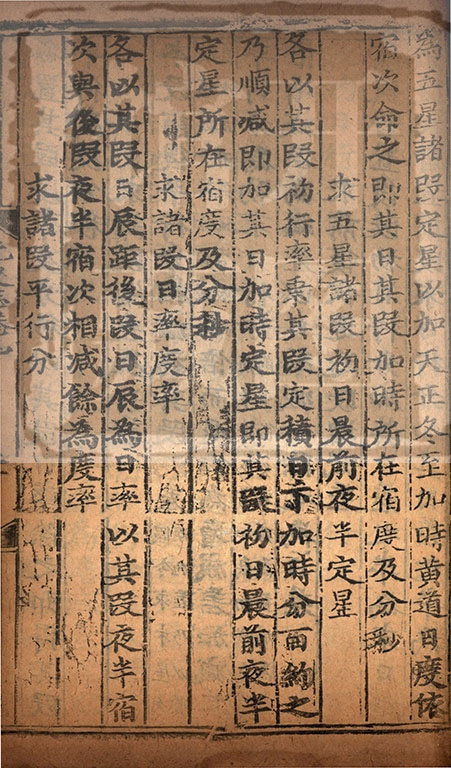 為五星諸段定星以加天正冬至加時黄道日度依
宿次命之即其日其段加時所在宿度及分秒
求五星諸段初日晨前夜半定星
各以其段初行率乘其段定積日下加時分百約之
乃順减即加其日加時定星即其段初日晨前夜半
定星所在宿度及分秒
求諸段日率度率
各以其段日辰距後段日辰為日率以其段夜半宿
次與後段夜半宿次相减餘為度率
求諸段平行分